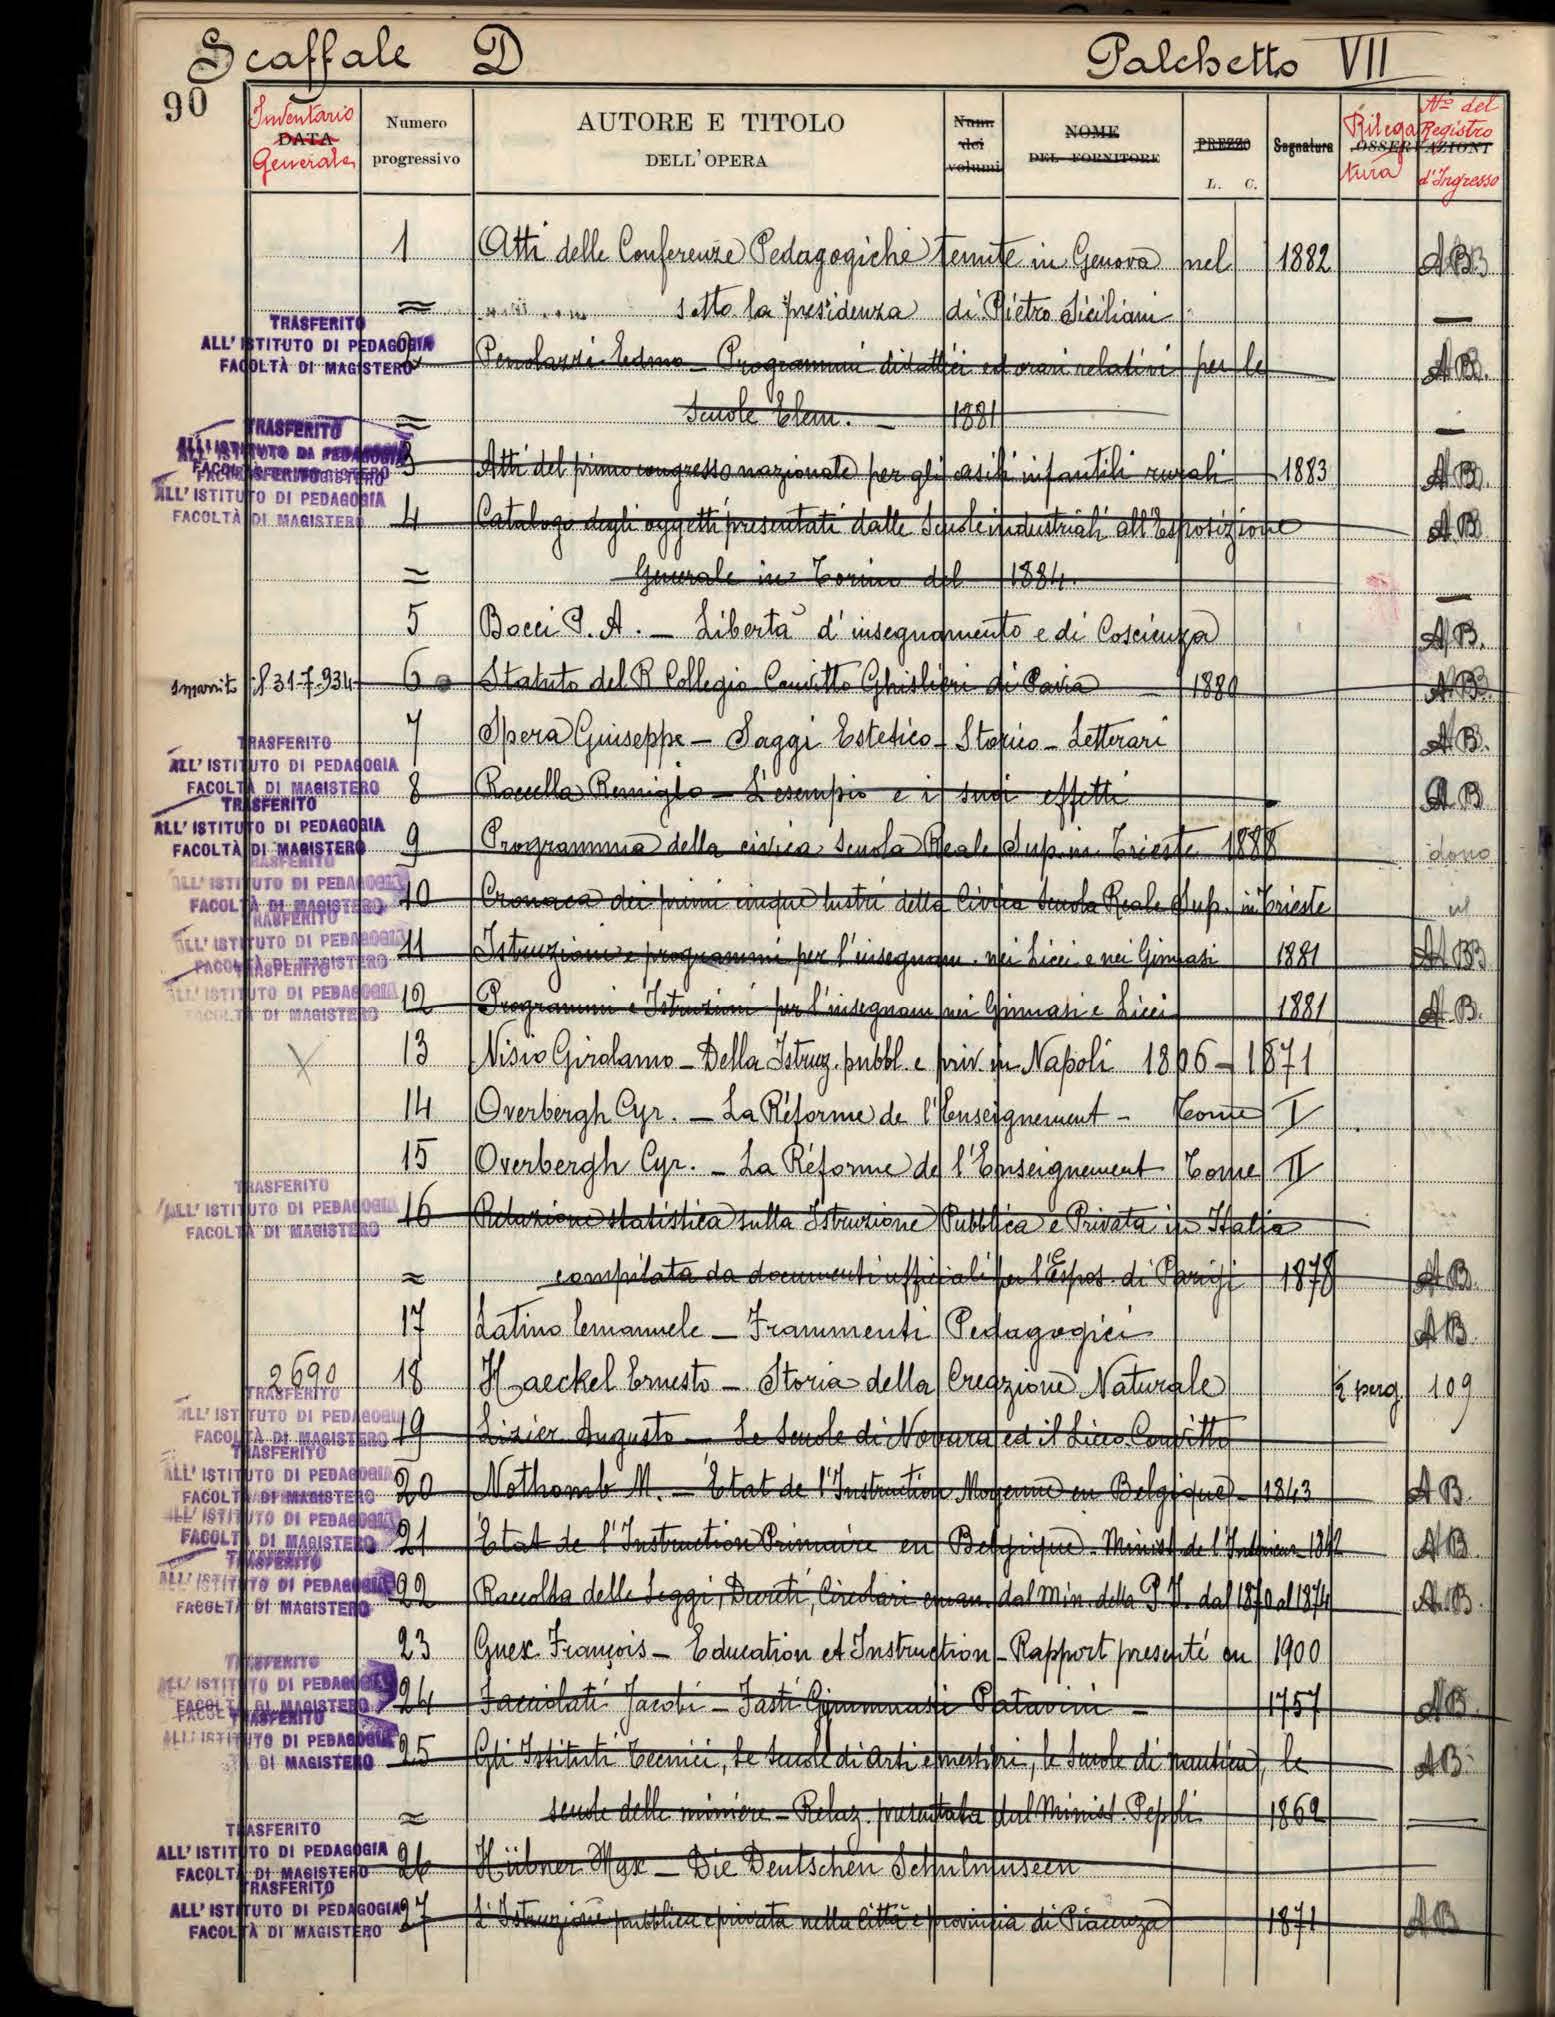 Scaffale D Palchetto VII
90
Inventario Generale DATA Numero progressivo AUTORE E TITOLO DELL'OPERA Num. dei volumi NOME DEL FORNITORE PREZZO L. C. Segnatura Rilegatura OSSERVAZIONI No del Registro d'Ingresso
1 Atti delle Conferenze Pedagogiche tenute in Genova nel 1882 AB
= sotto la presidenza di Pietro Siciliani —
TRASFERITO
ALL'ISTITUTO DI PEDAGOGIA
FACOLTÀ DI MAGISTERO
2 Edmo - Programmi didattici ed orari relativi per le AB.
= Scuole Elem. — 1881 —
TRASFERITO
ALL'ISTITUTO DI PEDAGOGIA
FACOLTÀ DI MAGISTERO
3 Atti del primo congresso nazionale per gli asili infantili rurali 1883 AB.
TRASFERITO
ALL'ISTITUTO DI PEDAGOGIA
FACOLTÀ DI MAGISTERO
4 Catalogo degli oggetti presentati dalle Scuole industriali all'Esposizione AB
= Generale in Torino del 1884. —
5 Bocci P. A. — Libertà d'insegnamento e di Coscienza AB.
smarrito 31-7-934 6 Statuto del R Collegio Convitto Ghislieri di Pavia — 1880 AB.
7 Spera Giuseppe — Saggi Estetico - Storico - Letterari AB.
TRASFERITO
ALL'ISTITUTO DI PEDAGOGIA
FACOLTÀ DI MAGISTERO
8 Roccella Remigio — L'esempio e i suoi effetti AB
TRASFERITO
ALL'ISTITUTO DI PEDAGOGIA
FACOLTÀ DI MAGISTERO
9 Programma della civica Scuola Reale Sup. in Trieste 1888 dono
TRASFERITO
ALL'ISTITUTO DI PEDAGOGIA
FACOLTÀ DI MAGISTERO
10 Cronaca dei primi cinque lustri della Civica Scuola Reale Sup. in Trieste
TRASFERITO
ALL'ISTITUTO DI PEDAGOGIA
FACOLTÀ DI MAGISTERO
11 Istruzioni e programmi per l'insegnam. nei Licei e nei Ginnasi 1881 AB
TRASFERITO
ALL'ISTITUTO DI PEDAGOGIA
FACOLTÀ DI MAGISTERO
12 Programmi e Istruzioni per l'insegnam nei Ginnasi e Licei 1881 AB.
X 13 Nisio Girolamo — Della Istruz. pubbl. e priv. in Napoli 1806 — 1871
14 Overbergh Cyr. — La Réforme de l'Enseignement - Tome I
15 Overbergh Cyr. — La Réforme de l'Enseignement Tome II
TRASFERITO
ALL'ISTITUTO DI PEDAGOGIA
FACOLTÀ DI MAGISTERO
16 Relazione statistica sulla Istruzione Pubblica e Privata in Italia
= compilata da documenti ufficiali per l'Espos. di Parigi 1878 AB.
17 Latino Emanuele — Frammenti Pedagogici AB
2690 18 Haeckel Ernesto — Storia della Creazione Naturale ½ perg. 109
TRASFERITO
ALL'ISTITUTO DI PEDAGOGIA
FACOLTÀ DI MAGISTERO
19 Lizier Augusto — Le Scuole di Novara ed il Liceo Convitto
TRASFERITO
ALL'ISTITUTO DI PEDAGOGIA
FACOLTÀ DI MAGISTERO
20 Nothomb M. — Etat de l'Instruction Moyenne en Belgique — 1843 AB.
ALL'ISTITUTO DI PEDAGOGIA
FACOLTÀ DI MAGISTERO
21 Etat de l'Instruction Primaire en Belgique. Minist. de l'Intérieur 1842 AB
TRASFERITO
ALL'ISTITUTO DI PEDAGOGIA
FACOLTÀ DI MAGISTERO
22 Raccolta delle Leggi, Decreti, Circolari eman. dal Min. della P. I. dal 1870 al 1874 AB.
23 Guex François — Education et Instruction — Rapport presenté en 1900
TRASFERITO
ALL'ISTITUTO DI PEDAGOGIA
FACOLTÀ DI MAGISTERO
24 Facciolati Jacobi — Fasti Gymnasii Patavini — 1757 AB.
TRASFERITO
ALL'ISTITUTO DI PEDAGOGIA
DI MAGISTERO
25 Gli Istituti Tecnici, le Scuole di arti e mestieri, le Scuole di nautica, le AB
= scuole delle miniere — Relaz. presentata dal Minist. Pepoli 1862 —
TRASFERITO
ALL'ISTITUTO DI PEDAGOGIA
FACOLTÀ DI MAGISTERO
26 Hübner Max — Die Deutschen Schulmuseen
TRASFERITO
ALL'ISTITUTO DI PEDAGOGIA
FACOLTÀ DI MAGISTERO
27 L'Istruzione pubblica e privata nella città e provincia di Piacenza 1871 AB